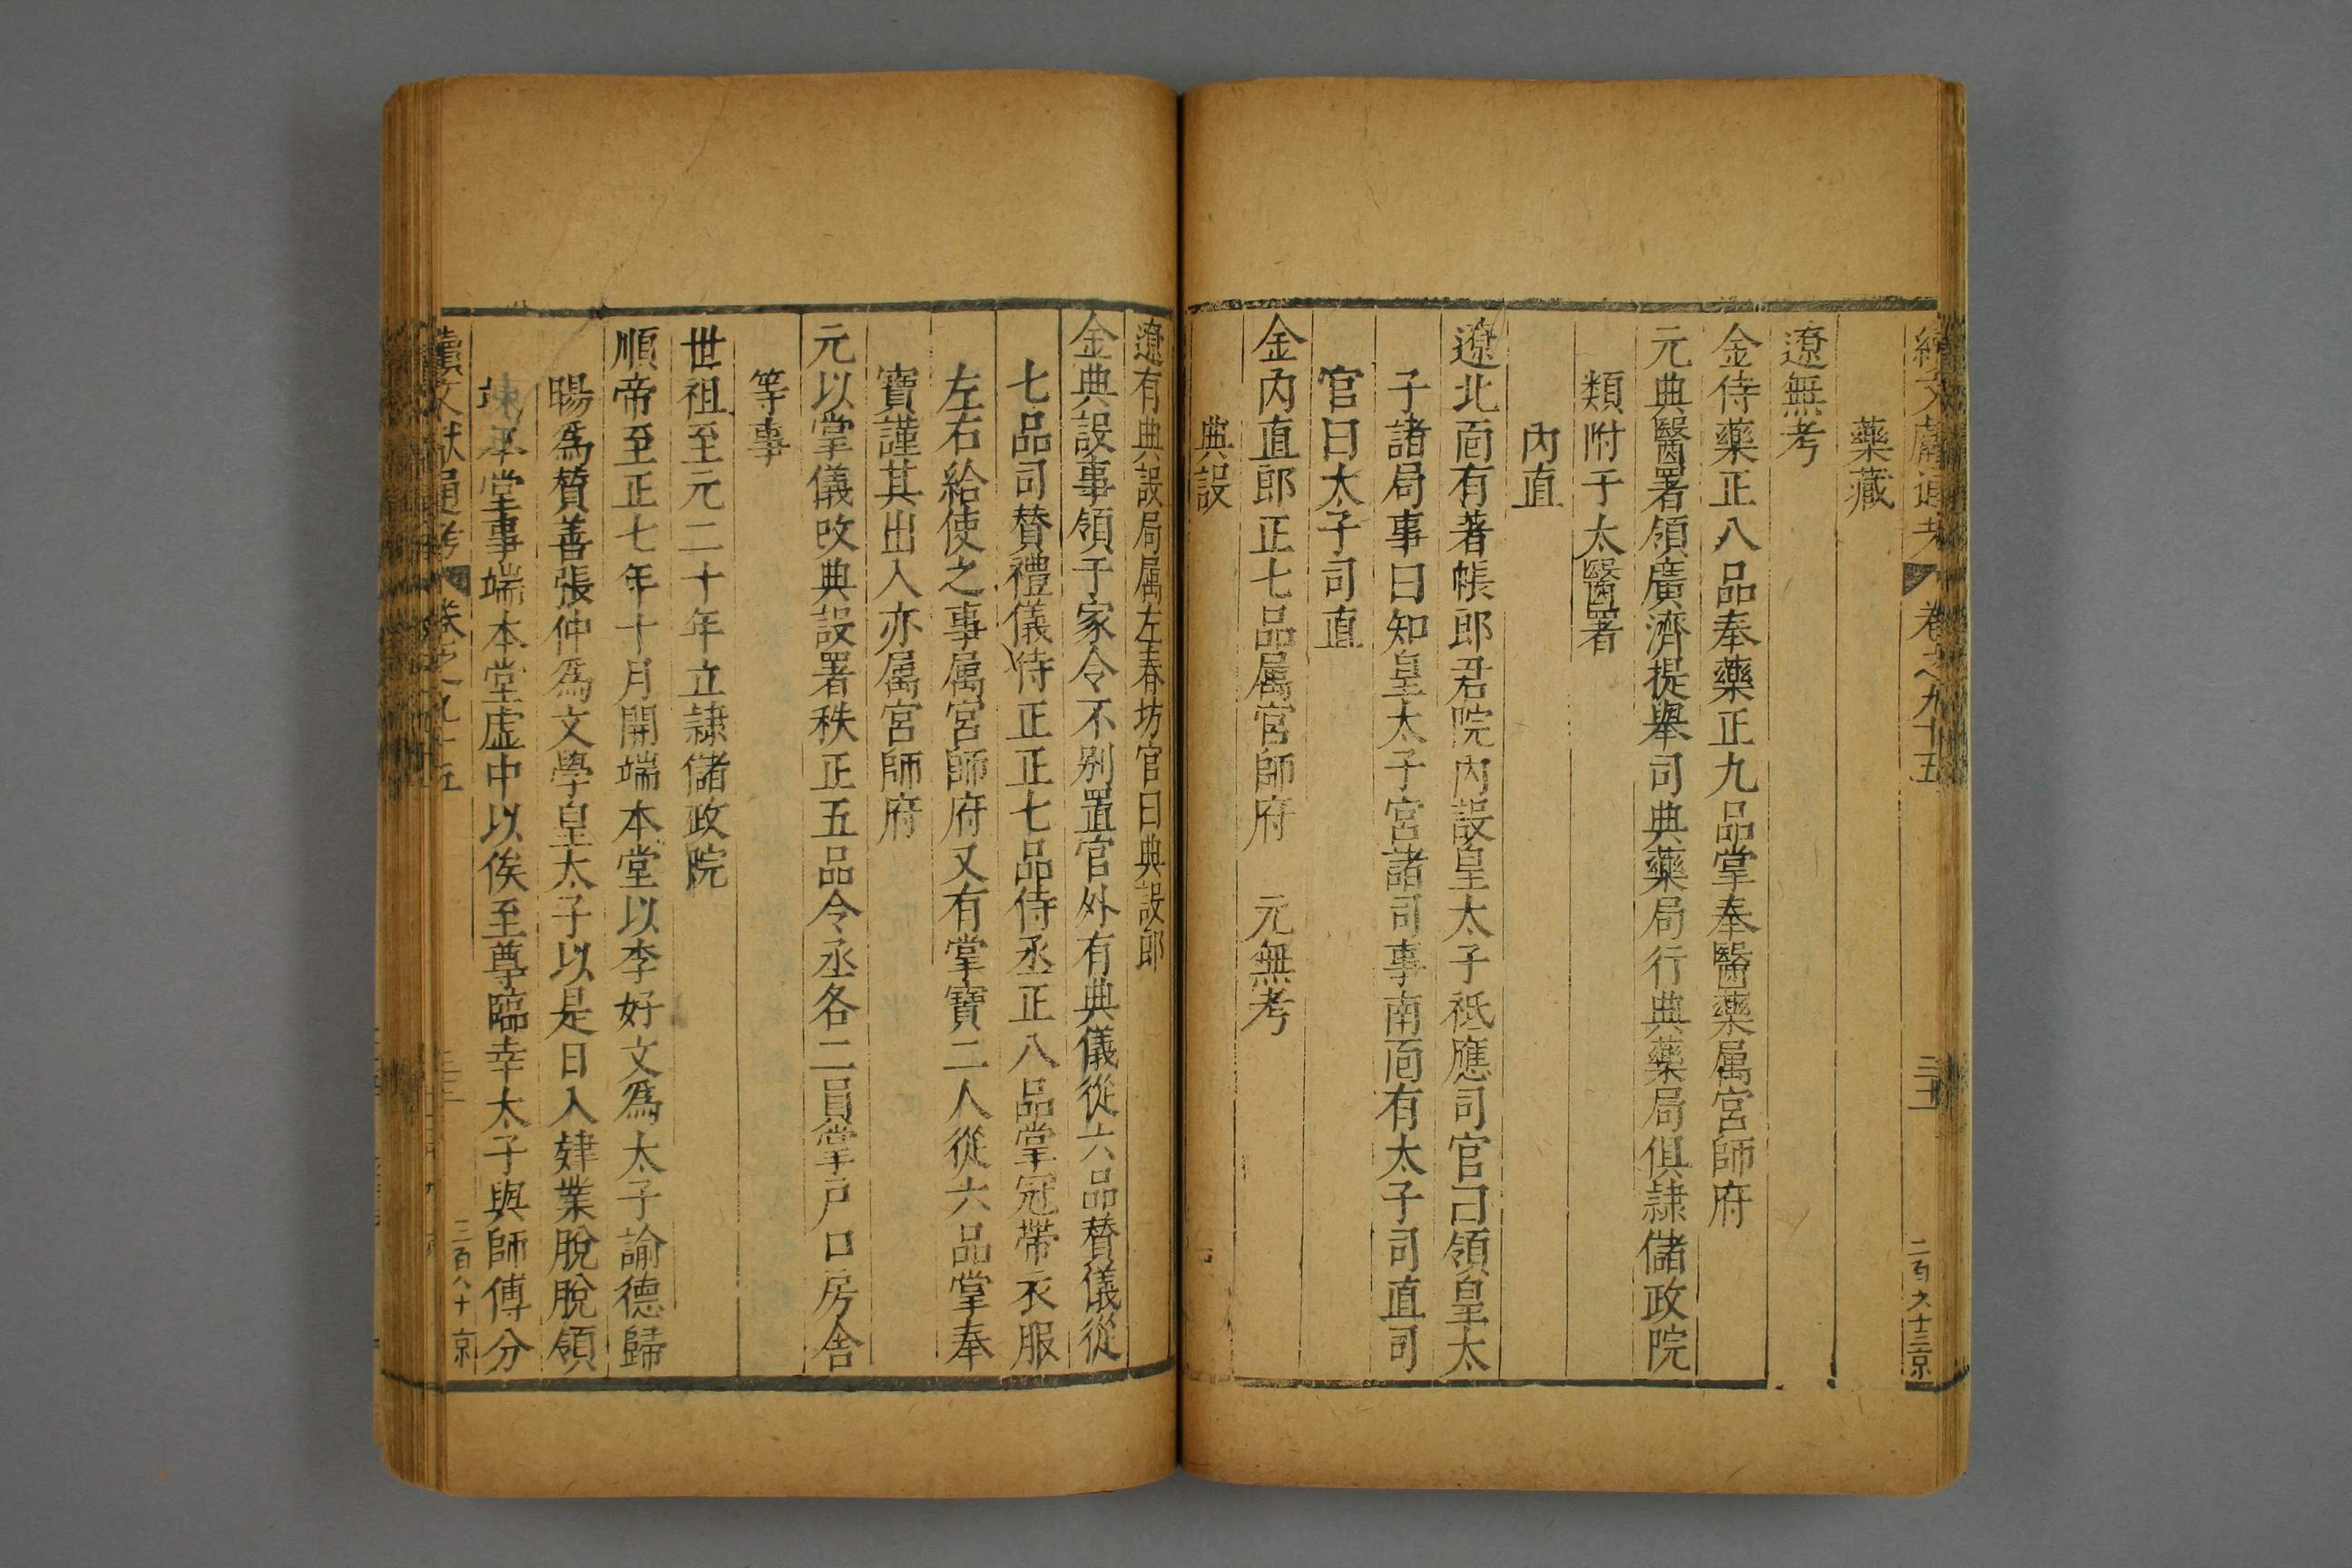 續文獻通考 卷之九十五
二百六十三京
藥藏
遼無考
金侍藥正八品奉藥正九品掌奉醫藥属宮師府
元典醫署領廣濟提舉司典藥局行典藥局俱隷儲政院
類附于太醫署
內直
遼北面有著帳郎君院內設皇太子祗應司官曰領皇太
子諸局事曰知皇太子宮諸司事南面有太子司直司
官曰太子司直
金內直郎正七品属宮師府 元無考
典設
遼有典設局属左春坊官曰典設郎
金典設事領于家令不別置官外有典儀從六品賛儀從
七品司賛禮儀侍正正七品侍丞正八品掌冠帶衣服
左右給使之事属宮師府又有掌寶二人從六品掌奉
寶謹其出入亦属宮師府
元以掌儀改典設署秩正五品令丞各二員掌戸口房舍
等事
世祖至元二十年立隷儲政院
順帝至正七年十月開端本堂以李好文為太子諭德歸
暘爲賛善張仲爲文學皇太子以是日入肄業脫脫領
本堂事端本堂虛中以俟至尊臨幸太子與師傅分
續文獻通考 卷之九十五
三百八十京